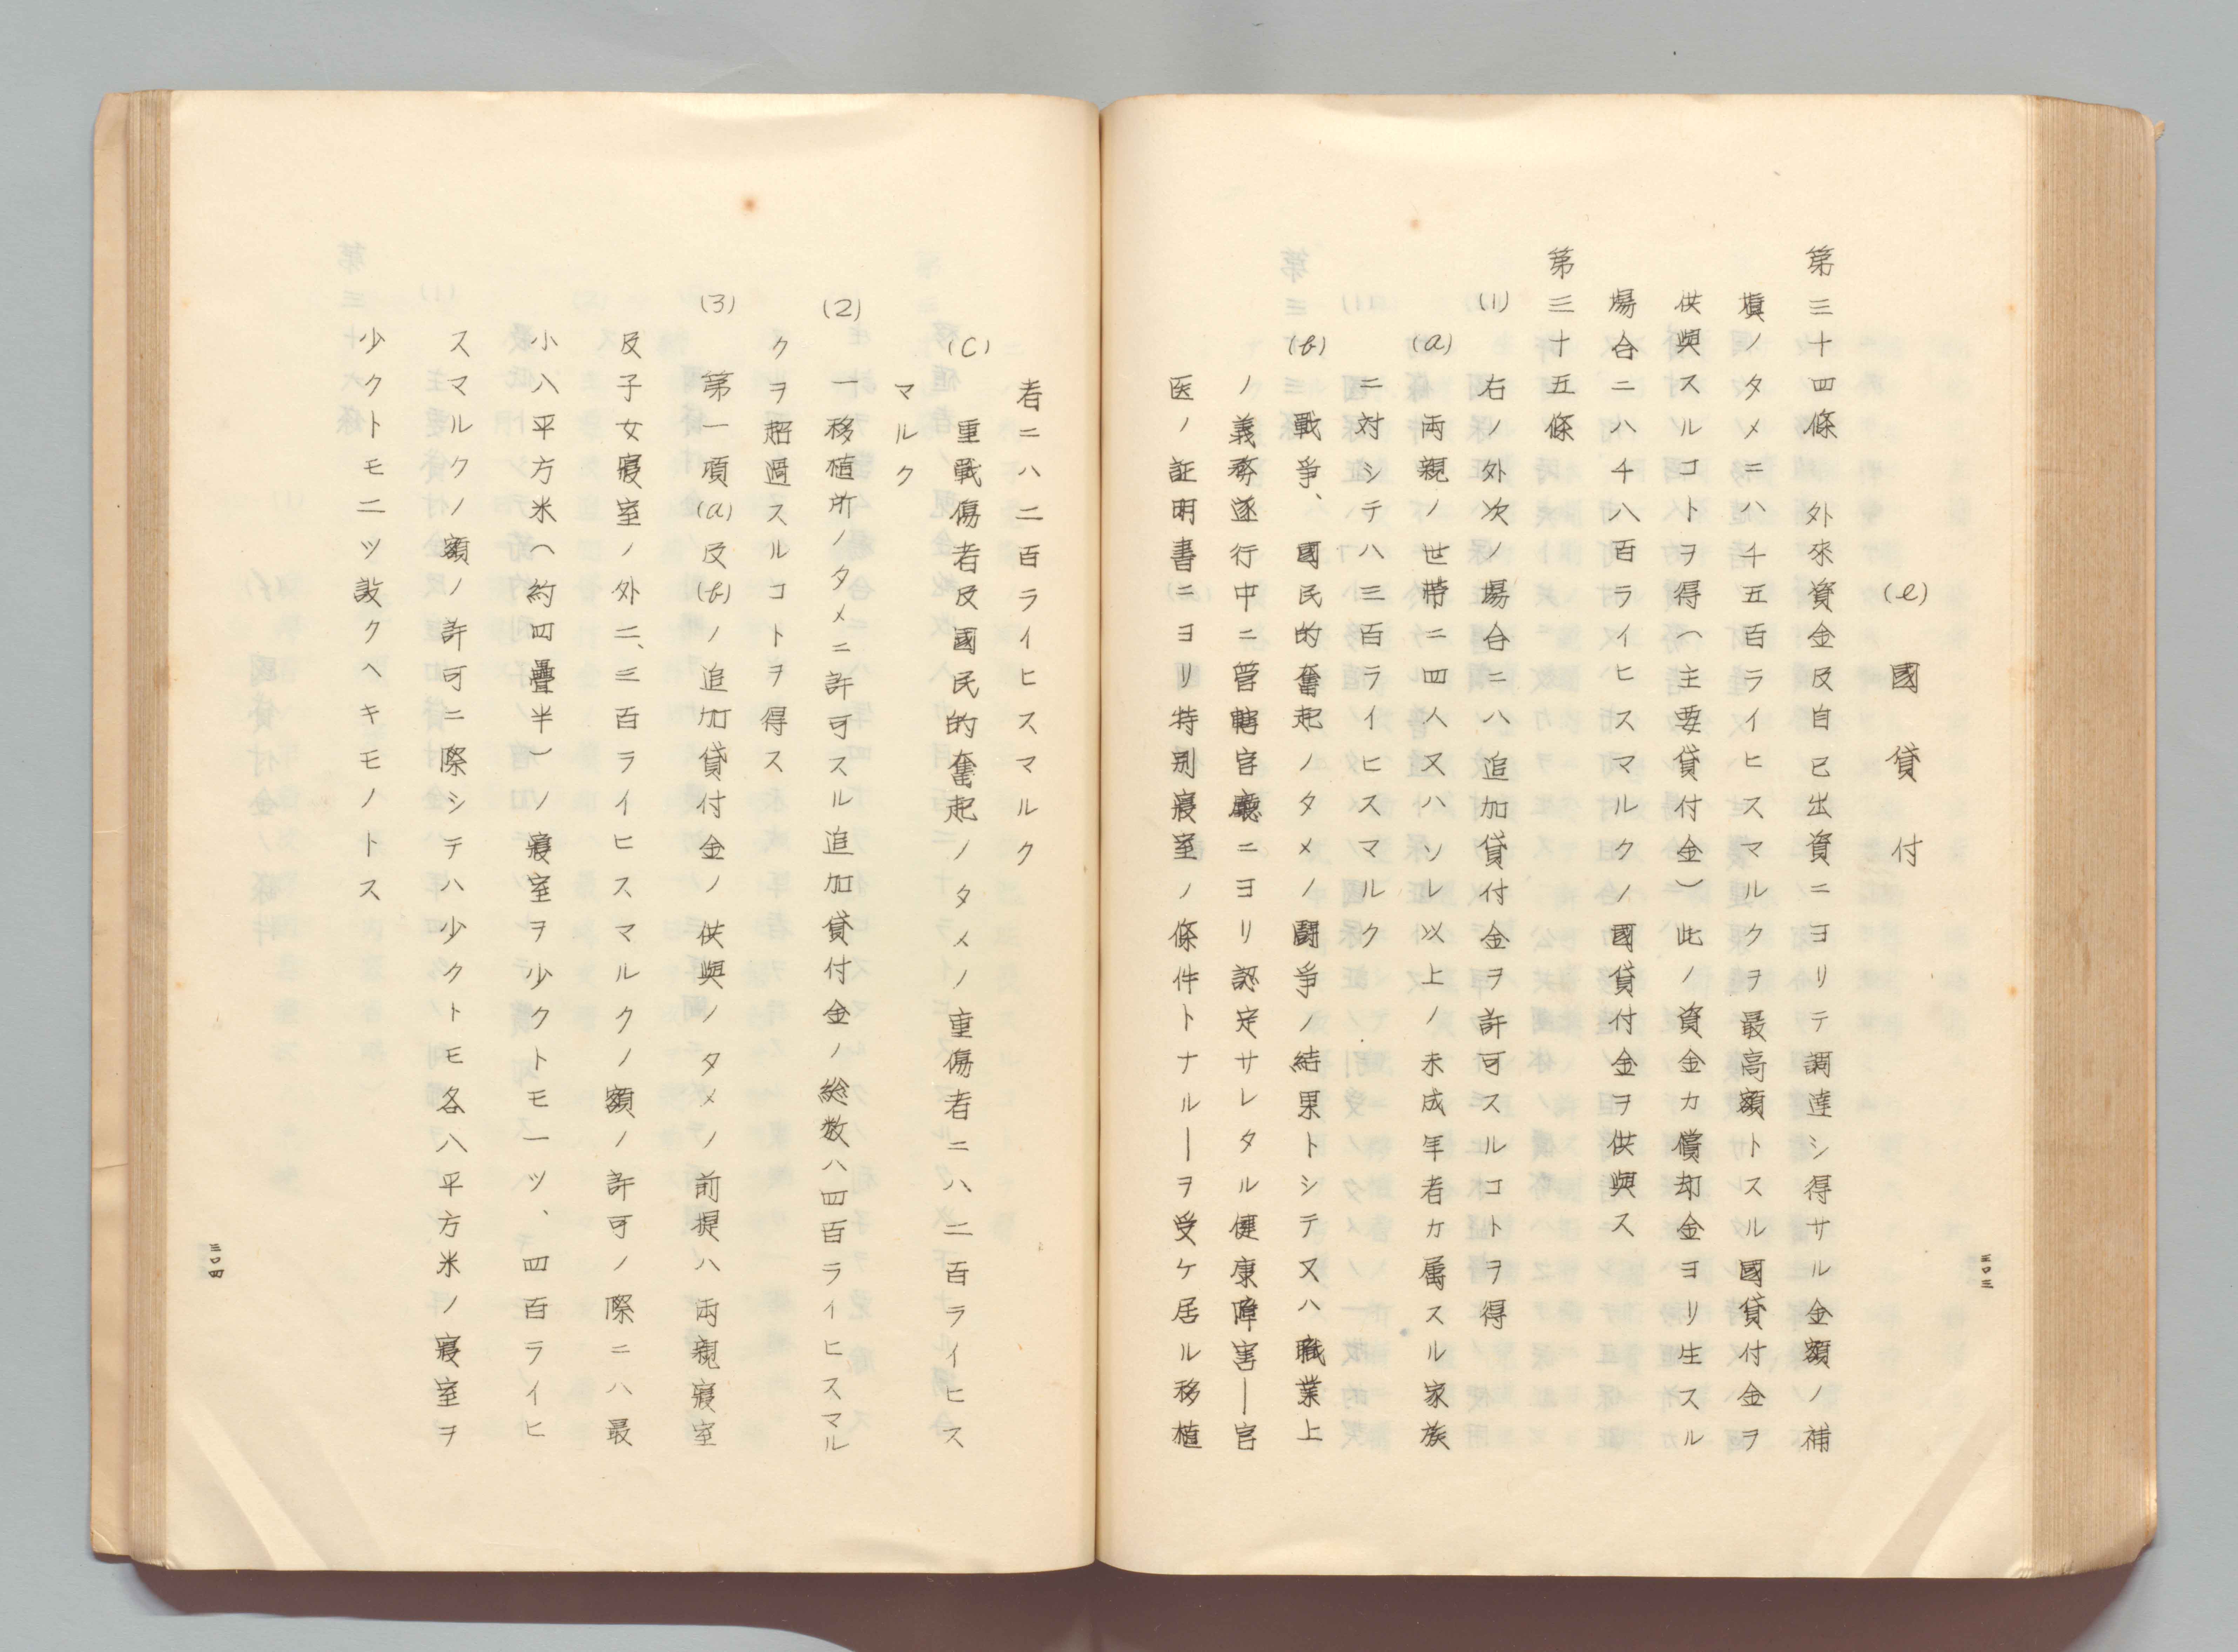 (e) 國貸付
第三十四條 外來資金及自己出資ニヨリテ調達シ得サル金額ノ補
塡ノタメニハ千五百ライヒスマルクヲ最高額トスル國貸付金ヲ
供與スルコトヲ得(主要貸付金)此ノ資金カ償却金ヨリ生スル
場合ニハ千八百ライヒスマルクノ國貸付金ヲ供與ス
第三十五條
(1) 右ノ外次ノ場合ニハ追加貸付金ヲ許可スルコトヲ得
(a) 両親ノ世帯ニ四人又ハソレ以上ノ未成年者カ属スル家族
ニ対シテハ三百ライヒスマルク
(b) 戰爭、國民的奮起ノタメノ鬪爭ノ結果トシテ又ハ職業上
ノ義務遂行中ニ管轄官廳ニヨリ認定サレタル健康障害―官
医ノ証明書ニヨリ特別寝室ノ條件トナル―ヲ受ケ居ル移植
三〇三
者ニハ二百ライヒスマルク
(C) 重戰傷者及國民的奮起ノタメノ重傷者ニハ、二百ライヒス
マルク
(2) 一移植所ノタメニ許可スル追加貸付金ノ総数ハ四百ライヒスマル
クヲ超過スルコトヲ得ス
(3) 第一項(a)及(b)ノ追加貸付金ノ供與ノタメノ前提ハ両親寝室
及子女寝室ノ外ニ、三百ライヒスマルクノ額ノ許可ノ際ニハ最
小八平方米(約四疊半)ノ寝室ヲ少クトモ一ツ、四百ライヒ
スマルクノ額ノ許可ニ際シテハ少クトモ各八平方米ノ寝室ヲ
少クトモ二ツ設クヘキモノトス
三〇四